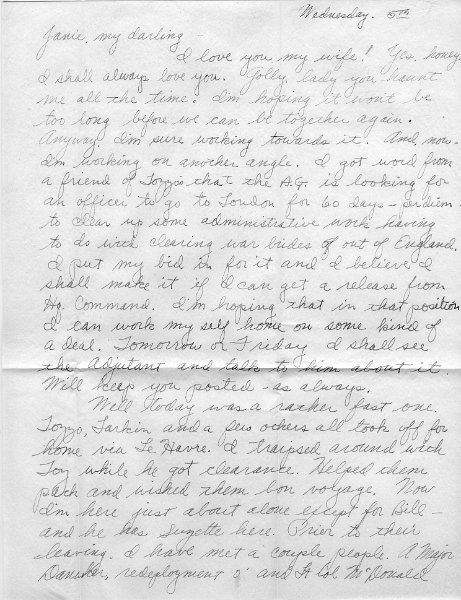 Wednesday. 5th
Janie, my darling -
I love you my wife! Yes, honey
I shall always love you. Golly, lady you haunt
me all the time. I'm hoping it won't be
too long before we can be together again.
Anyway, I'm sure working towards it. And, now -
I'm working on another angle. I got word from
a friend of Tozzo that the A.G. is looking for
an officer to go to London for 60 days - perdiem -
to clear up some administrative work having
to do with clearing war brides of out of England.
I put my bid in for it and I believe I
shall make it if I can get a release from
Hq. Command. I'm hoping that in that position
I can work my self home on some kind of
a deal. Tomorrow or Friday I shall see
the Adjutant and talk to him about it.
Will keep you posted - as always.
Well today was a rather fast one.
Tozzo, Larkin and a few others all took off for
home via Le Havre. I traipsed around with
Toz while he got clearance. Helped them
pack and wished them bon voyage. Now
I'm here just about alone except for Bill -
and he has Suzette here. Prior to their
leaving I have met a couple people. A Major
redeployment O' and Lt Col McDonald